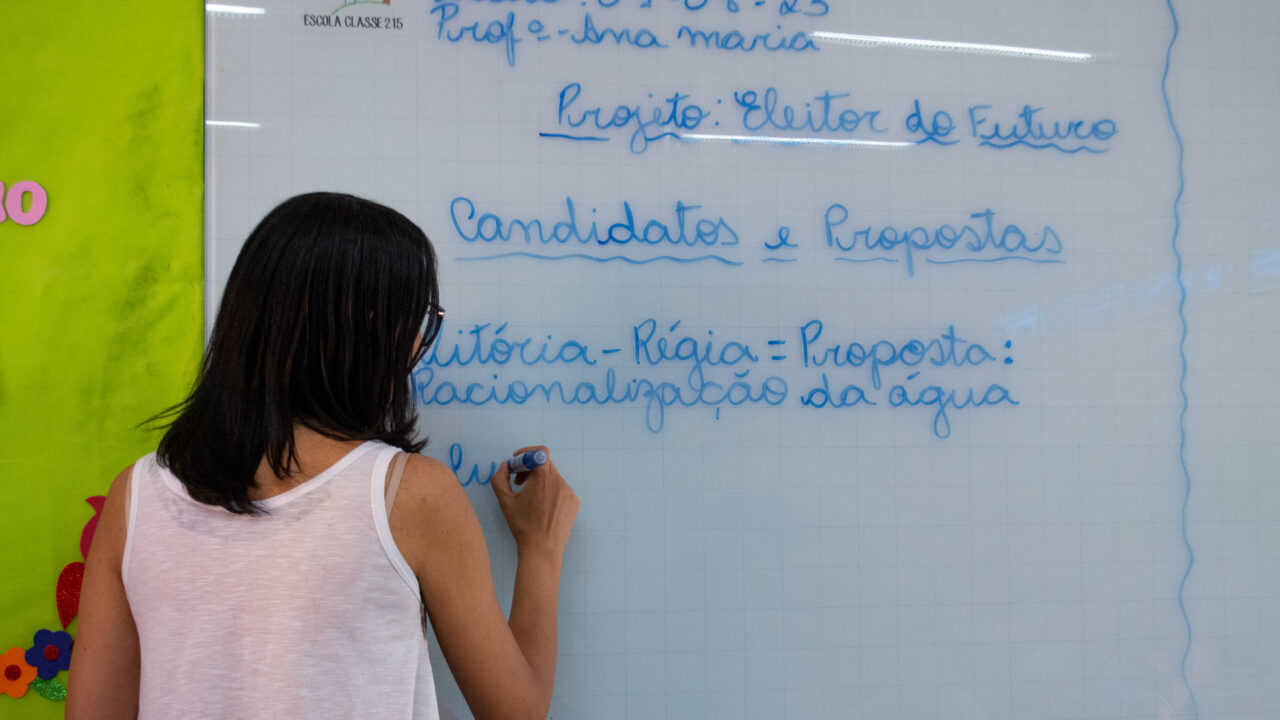 ESCOLA CLASSE 215
Profª - Ana maria
Projeto: Eleitor do Futuro
Candidatos e Propostas
litória - Régia = Proposta:
Racionalização da água